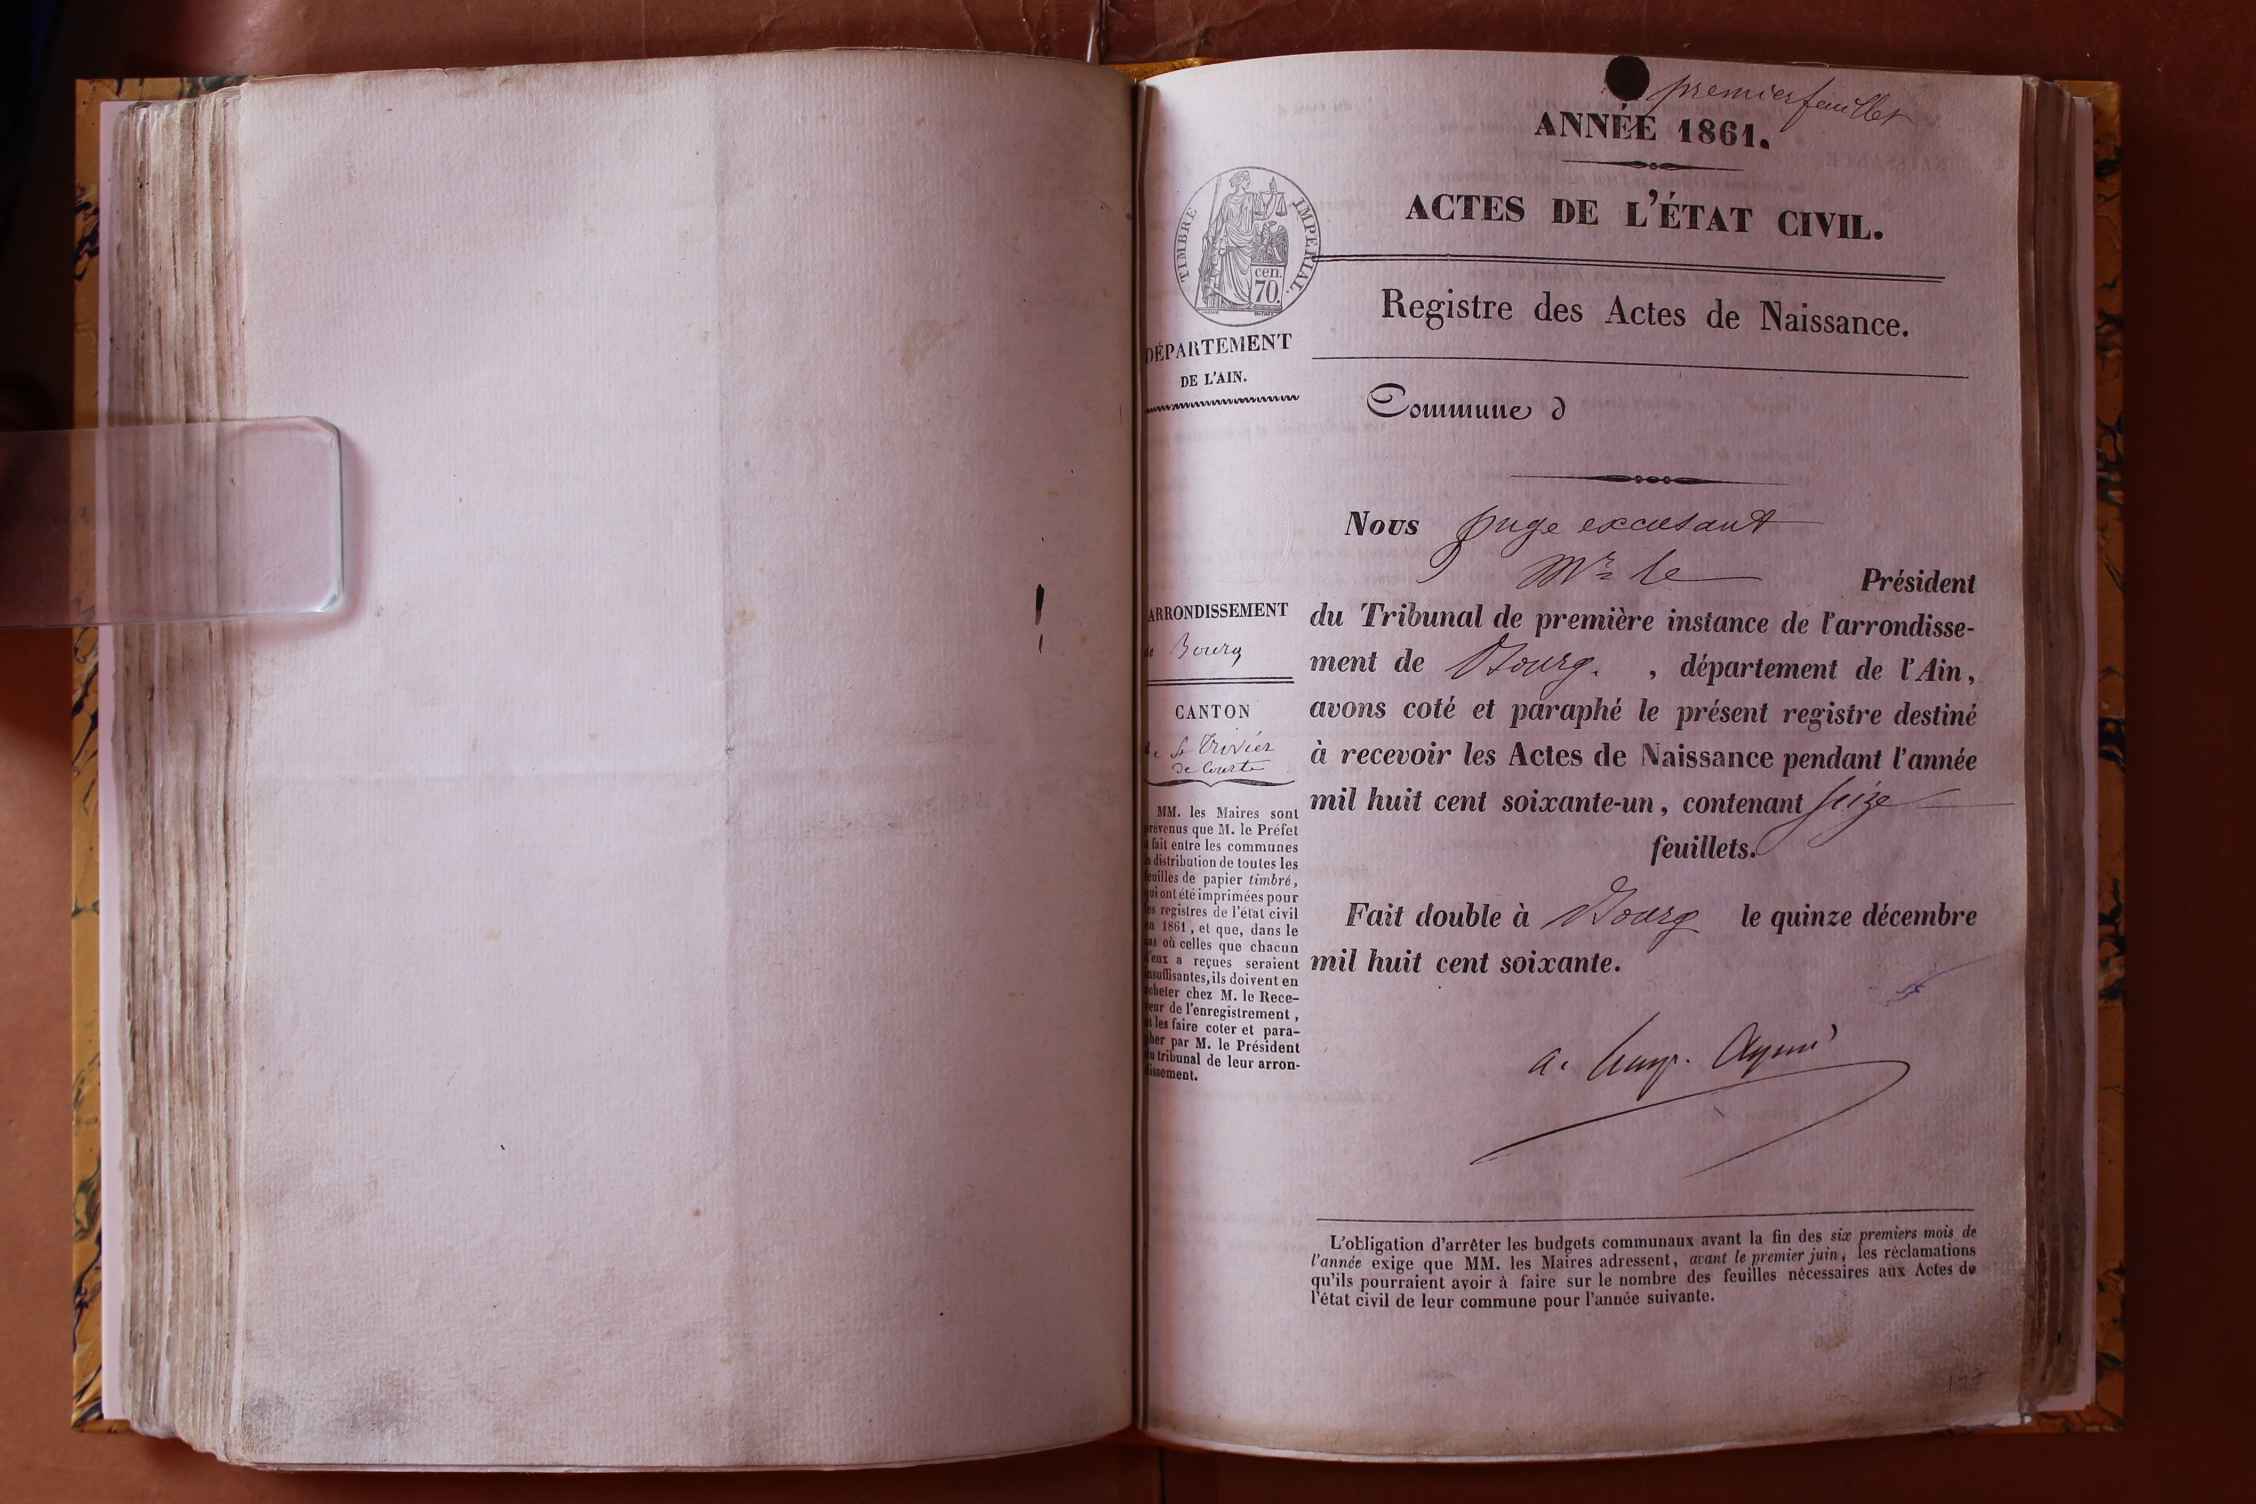 premier feuillet
ANNÉE 1861.
ACTES DE L'ÉTAT CIVIL.
TIMBRE IMPERIAL.
cen.
70.
Registre des Actes de Naissance.
DÉPARTEMENT
DE L'AIN.
Commune d
Nous juge excusant
Mr le Président
du Tribunal de première instance de l'arrondisse-
ment de Bourg. , département de l'Ain,
avons coté et paraphé le présent registre destiné
à recevoir les Actes de Naissance pendant l'année
mil huit cent soixante-un, contenant seize
feuillets.
Fait double à Bourg le quinze décembre
mil huit cent soixante.
ARRONDISSEMENT
de Bourg
CANTON
de St Trivier
de Courte
MM. les Maires sont
prévenus que M. le Préfet
a fait entre les communes
la distribution de toutes les
feuilles de papier timbré,
qui ont été imprimées pour
les registres de l'état civil
en 1861, et que, dans le
cas où celles que chacun
d'eux a reçues seraient
insuffisantes, ils doivent en
acheter chez M. le Rece-
veur de l'enregistrement,
et les faire coter et para-
pher par M. le Président
du tribunal de leur arron-
dissement.
L'obligation d'arrêter les budgets communaux avant la fin des six premiers mois de
l'année exige que MM. les Maires adressent, avant le premier juin, les réclamations
qu'ils pourraient avoir à faire sur le nombre des feuilles nécessaires aux Actes de
l'état civil de leur commune pour l'année suivante.